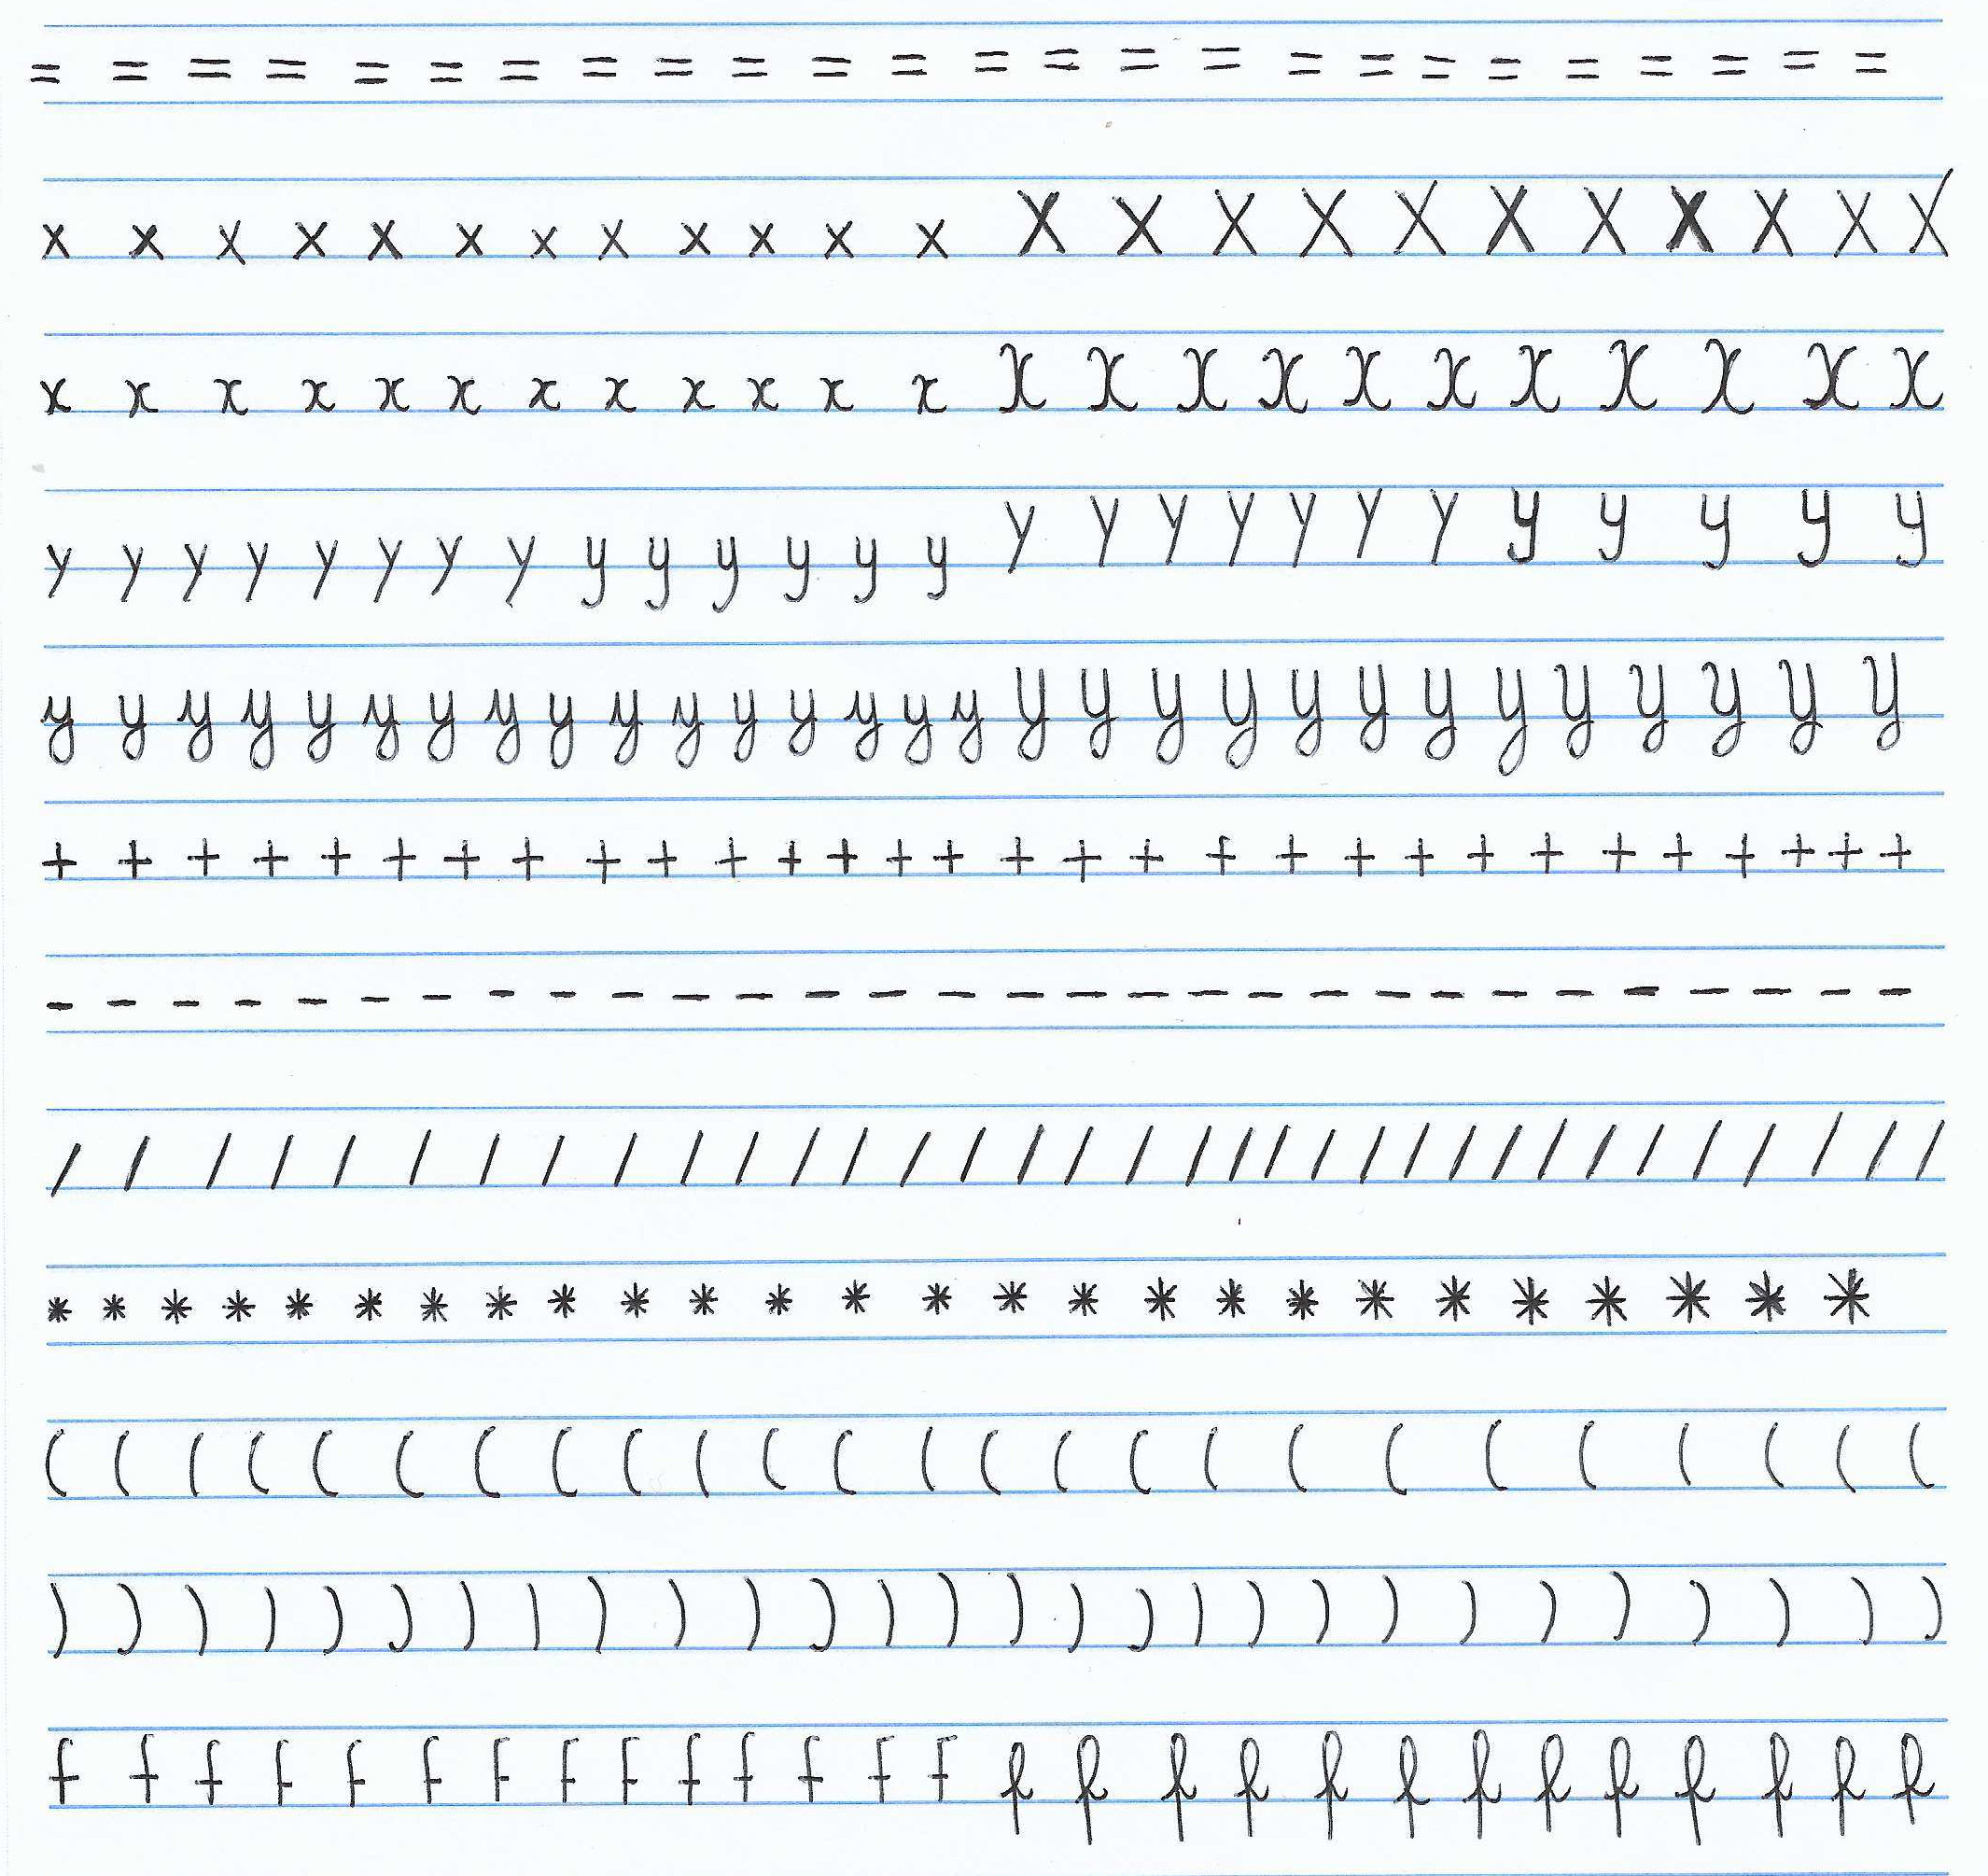 = = = = = = = = = = = = = = = = = = = = = = = = =
x x x x x x x x x x x x X X X X X X X X X X X
x x x x x x x x x x x x X X X X X X X X X X X
y y y y y y y y y y y y y y Y Y Y Y Y Y Y Y Y Y Y Y
y y y y y y y y y y y y y y y y Y Y Y Y Y Y Y Y Y Y Y Y Y
+ + + + + + + + + + + + + + + + + + + + + + + + + + + + + +
- - - - - - - - - - - - - - - - - - - - - - - - - - - - - -
/ / / / / / / / / / / / / / / / / / / / / / / / / / / / / / / / / /
* * * * * * * * * * * * * * * * * * * * * * * * * *
( ( ( ( ( ( ( ( ( ( ( ( ( ( ( ( ( ( ( ( ( ( ( ( (
) ) ) ) ) ) ) ) ) ) ) ) ) ) ) ) ) ) ) ) ) ) ) ) ) ) ) )
f f f f f f f f f f f f f f f f f f f f f f f f f f f